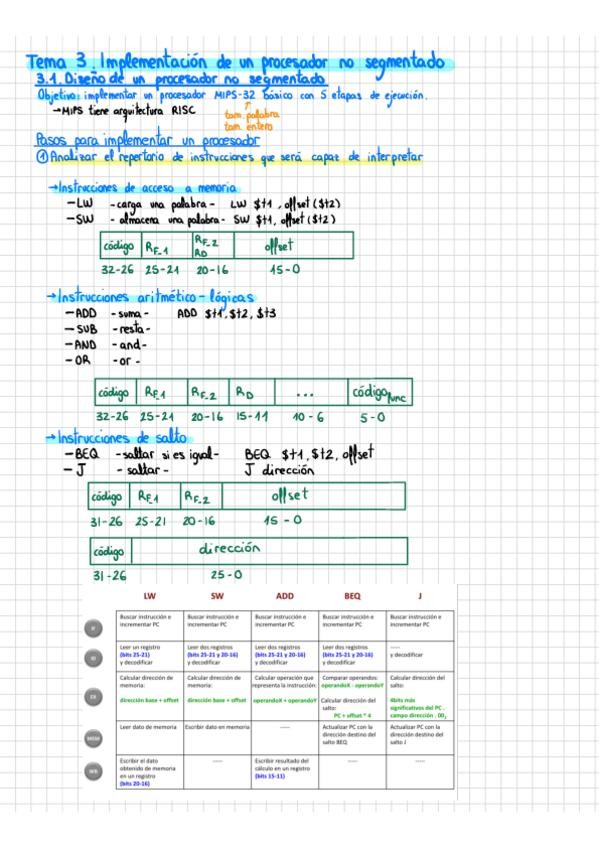 Tema 3. Implementación de un procesador no segmentado
3.1. Diseño de un procesador no segmentado
Objetivo: implementar un procesador MIPS-32 básico con 5 etapas de ejecución.
→MIPS tiene arquitectura RISC
tam. palabra
tam. entero
Pasos para implementar un procesador
① Analizar el repertorio de instrucciones que será capaz de interpretar
→Instrucciones de acceso a memoria
-LW -carga una palabra- LW $t1, offset($t2)
-SW -almacena una palabra- SW $t1, offset($t2)
código RF_1 RF_2 RD offset
32-26 25-21 20-16 15-0
→Instrucciones aritmético-lógicas
-ADD -suma- ADD $t1, $t2, $t3
-SUB -resta-
-AND -and-
-OR -or-
código RF_1 RF_2 RD ... código func
32-26 25-21 20-16 15-11 10-6 5-0
→Instrucciones de salto
-BEQ -saltar si es igual- BEQ $t1, $t2, offset
-J -saltar- J dirección
código RF_1 RF_2 offset
31-26 25-21 20-16 15-0
código dirección
31-26 25-0
LW SW ADD BEQ J
IF
Buscar instrucción e incrementar PC
Buscar instrucción e incrementar PC
Buscar instrucción e incrementar PC
Buscar instrucción e incrementar PC
Buscar instrucción e incrementar PC
ID
Leer un registro (bits 25-21) y decodificar
Leer dos registros (bits 25-21 y 20-16) y decodificar
Leer dos registros (bits 25-21 y 20-16) y decodificar
Leer dos registros (bits 25-21 y 20-16) y decodificar
----- y decodificar
EX
Calcular dirección de memoria: dirección base + offset
Calcular dirección de memoria: dirección base + offset
Calcular operación que representa la instrucción: operandoX + operandoY
Comparar operandos: operandoX - operandoY Calcular dirección del salto: PC + offset * 4
Calcular dirección del salto: 4bits más significativos del PC . campo dirección . 00₂
MEM
Leer dato de memoria
Escribir dato en memoria
-----
Actualizar PC con la dirección destino del salto BEQ
Actualizar PC con la dirección destino del salto J
WB
Escribir el dato obtenido de memoria en un registro (bits 20-16)
-----
Escribir resultado del cálculo en un registro (bits 15-11)
-----
-----